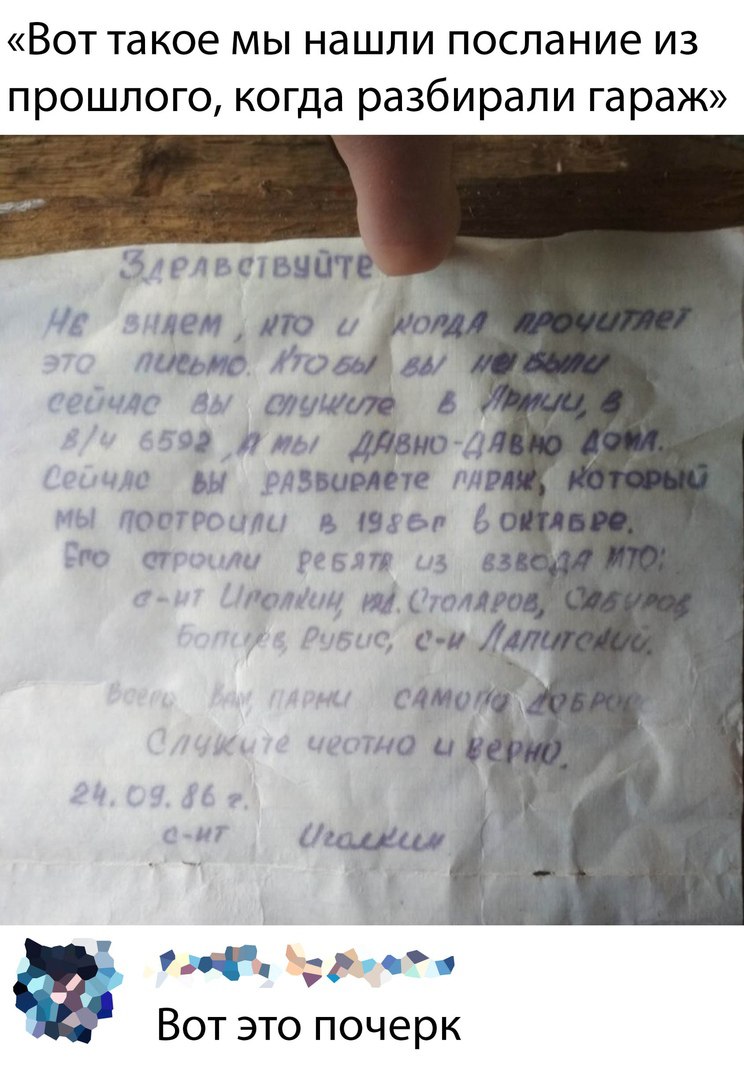 «Вот такое мы нашли послание из
прошлого, когда разбирали гараж»
Здравствуйте
Не знаем, кто и когда прочитает
это письмо. Кто бы вы не были
сейчас вы служите в Армии, в
в/ч 6592, а мы давно-давно дома.
Сейчас вы разбираете гараж, который
мы построили в 1986г в октябре.
Его строили ребята из взвода ИТО:
с-нт Иголкин, Столяров, Сабуров,
Рубис, с-н Лапитский.
Всего Вам парни самого
Служите честно и верно.
24.09.86 г.
с-нт Иголкин
Вот это почерк